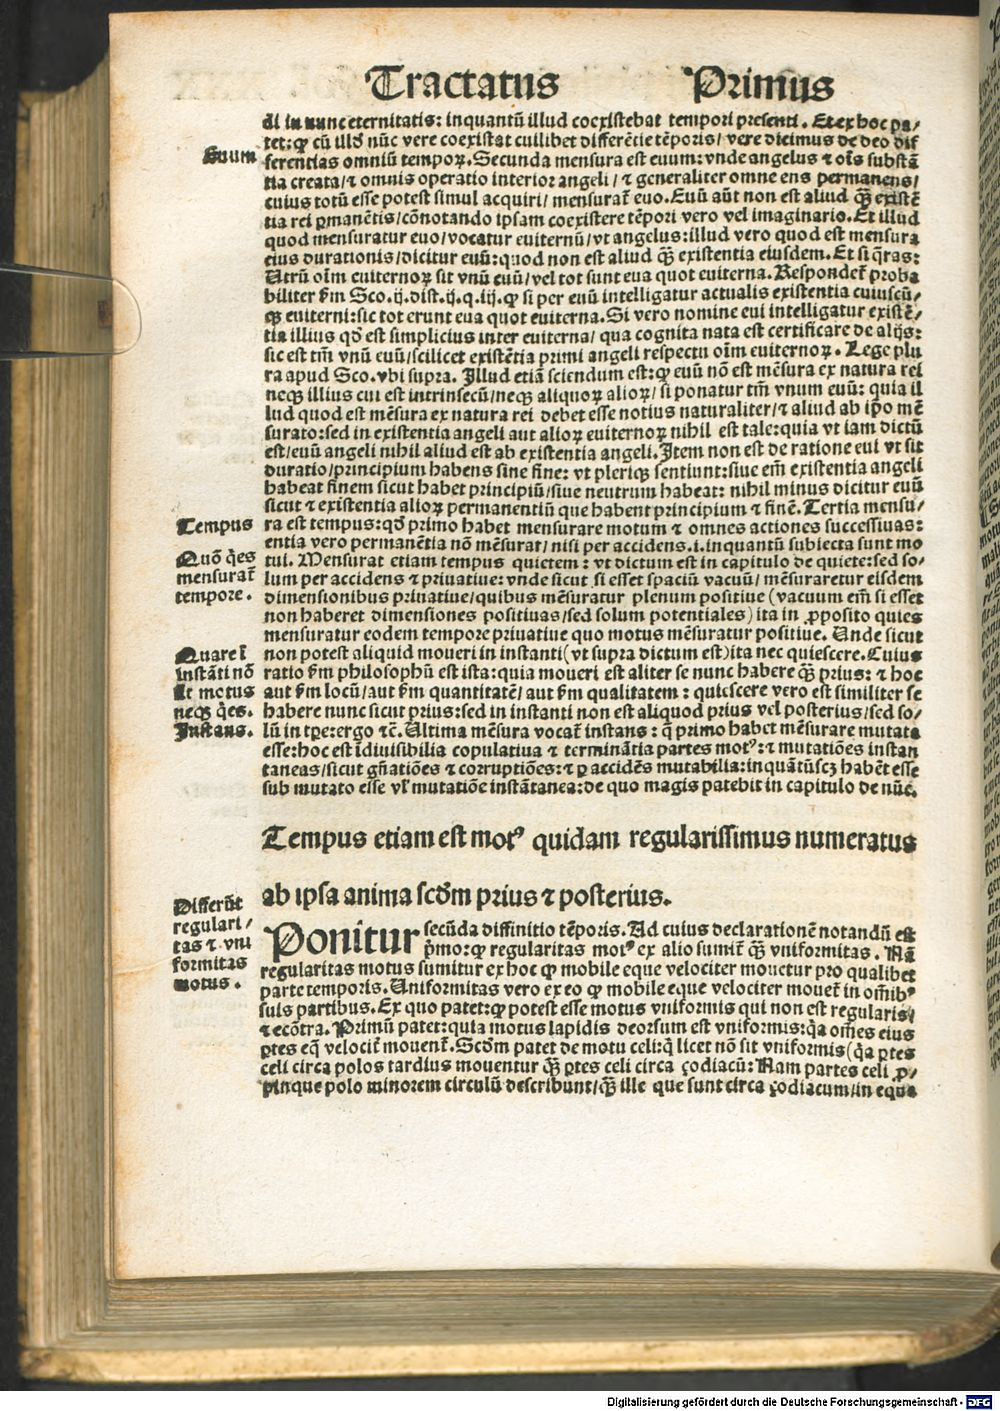 Tractatus Primus
di in nunc eternitatis: inquantũ illud coexistebat tempori presenti. Et ex hoc pa/
tet: ꝙ cũ illđ nũc vere coexistat cuilibet differẽtie tẽporis/ vere dicimus de deo dif
Euum
ferentias omniũ tempoꝝ. Secunda mensura est euum: vnde angelus ⁊ oĩs substã
tia creata/ ⁊ omnis operatio interior angeli/ ⁊ generaliter omne ens permanens/
cuius totũ esse potest simul acquiri/ mensurat̃ euo. Euũ aũt non est aliud ꝙ̃ existẽ
tia rei ꝑmanẽtis/ cõnotando ipsam coexistere tẽpori vero vel imaginario. Et illud
quod mensuratur euo/ vocatur euiternũ/ vt angelus: illud vero quod est mensura
eius durationis/ dicitur euũ: quod non est aliud ꝙ̃ existentia eiusdem. Et si q̃ras:
Utrũ oĩm euiternoꝝ sit vnũ euũ/ vel tot sunt eua quot euiterna. Respondet̃ proba
biliter ẜm Sco. ij. dist. ij. q. iij. ꝙ si per euũ intelligatur actualis existentia cuiuscũ/
qꝫ euiterni: sic tot erunt eua quot euiterna. Si vero nomine eui intelligatur existẽ/
tia illius qđ est simplicius inter euiterna/ qua cognita nata est certificare de alijs:
sic est tm̃ vnũ euũ/ scilicet existẽtia primi angeli respectu oĩm euiternoꝝ. Lege plu
ra apud Sco. vbi supra. Illud etiã sciendum est: ꝙ euũ nõ est mẽsura ex natura rei
neqꝫ illius cui est intrinsecũ/ neqꝫ aliquoꝝ alioꝝ/ si ponatur tm̃ vnum euũ: quia il
lud quod est mẽsura ex natura rei debet esse notius naturaliter/ ⁊ aliud ab ip̃o mẽ
surato: sed in existentia angeli aut alioꝝ euiternoꝝ nihil est tale: quia vt iam dictũ
est/ euũ angeli nihil aliud est ab existentia angeli. Item non est de ratione eui vt sit
duratio/ principium habens sine fine: vt pleriqꝫ sentiunt: siue em̃ existentia angeli
habeat finem sicut habet principiũ/ siue neutrum habeat: nihil minus dicitur euũ
sicut ⁊ existentia alioꝝ permanentiũ que habent principium ⁊ finẽ. Tertia mensu/
Tempus
ra est tempus: qđ primo habet mensurare motum ⁊ omnes actiones successiuas:
entia vero permanẽtia nõ mẽsurat/ nisi per accidens .i. inquantũ subiecta sunt mo
Quõ q̃es
mensurat̃
tempore.
tui. Mensurat etiam tempus quietem: vt dictum est in capitulo de quiete: sed so/
lum per accidens ⁊ priuatiue: vnde sicut si esset spaciũ vacuũ/ mẽsuraretur eisdem
dimensionibus priuatiue/ quibus mẽsuratur plenum positiue (vacuum em̃ si esset
non haberet dimensiones positiuas/ sed solum potentiales) ita in ꝓposito quies
mensuratur eodem tempore priuatiue quo motus mẽsuratur positiue. Unde sicut
Quare ĩ
instãti nõ
ẽt motus
neqꝫ q̃es.
non potest aliquid moueri in instanti (vt supra dictum est) ita nec quiescere. Cuius
ratio ẜm philosophũ est ista: quia moueri est aliter se nunc habere ꝙ̃ prius: ⁊ hoc
aut ẜm locũ/ aut ẜm quantitatẽ/ aut ẜm qualitatem: quiescere vero est similiter se
habere nunc sicut prius: sed in instanti non est aliquod prius vel posterius/ sed so/
Instans.
lũ in tꝑe: ergo ⁊c̃. Ultima mẽsura vocat̃ instans: q̃ primo habet mẽsurare mutata
esse: hoc est ĩdiuisibilia copulatiua ⁊ terminãtia partes motꝰ: ⁊ mutatiões instan
taneas/ sicut gñatiões ⁊ corruptiões: ⁊ ꝑ accidẽs mutabilia: inquãtũscꝫ habẽt esse
sub mutato esse vl̃ mutatiõe instãtanea: de quo magis patebit in capitulo de nũc.
Tempus etiam est motꝰ quidam regularissimus numeratus
ab ipsa anima scđm prius ⁊ posterius.
Differũt
regulari/
tas ⁊ vni
formitas
motus.
Ponitur secũda diffinitio tẽporis. Ad cuius declarationẽ notandũ est
p̃mo: ꝙ regularitas motꝰ ex alio sumit̃ ꝙ̃ vniformitas. Nã
regularitas motus sumitur ex hoc ꝙ mobile eque velociter mouetur pro qualibet
parte temporis. Uniformitas vero ex eo ꝙ mobile eque velociter mouet̃ in om̃ibꝰ
suis partibus. Ex quo patet: ꝙ potest esse motus vniformis qui non est regularis/
⁊ ecõtra. Primũ patet: quia motus lapidis deorsum est vniformis: q̃a om̃es eius
ꝑtes eq̃ velocit̃ mouent̃. Scđm patet de motu celi: q̃ licet nõ sit vniformis (q̃a ꝑtes
celi circa polos tardius mouentur ꝙ̃ ꝑtes celi circa çodiacũ: Nam partes celi ꝓ/
pinque polo minorem circulũ describunt/ ꝙ̃ ille que sunt circa çodiacum/ in equa
Digitalisierung gefördert durch die Deutsche Forschungsgemeinschaft - DFG